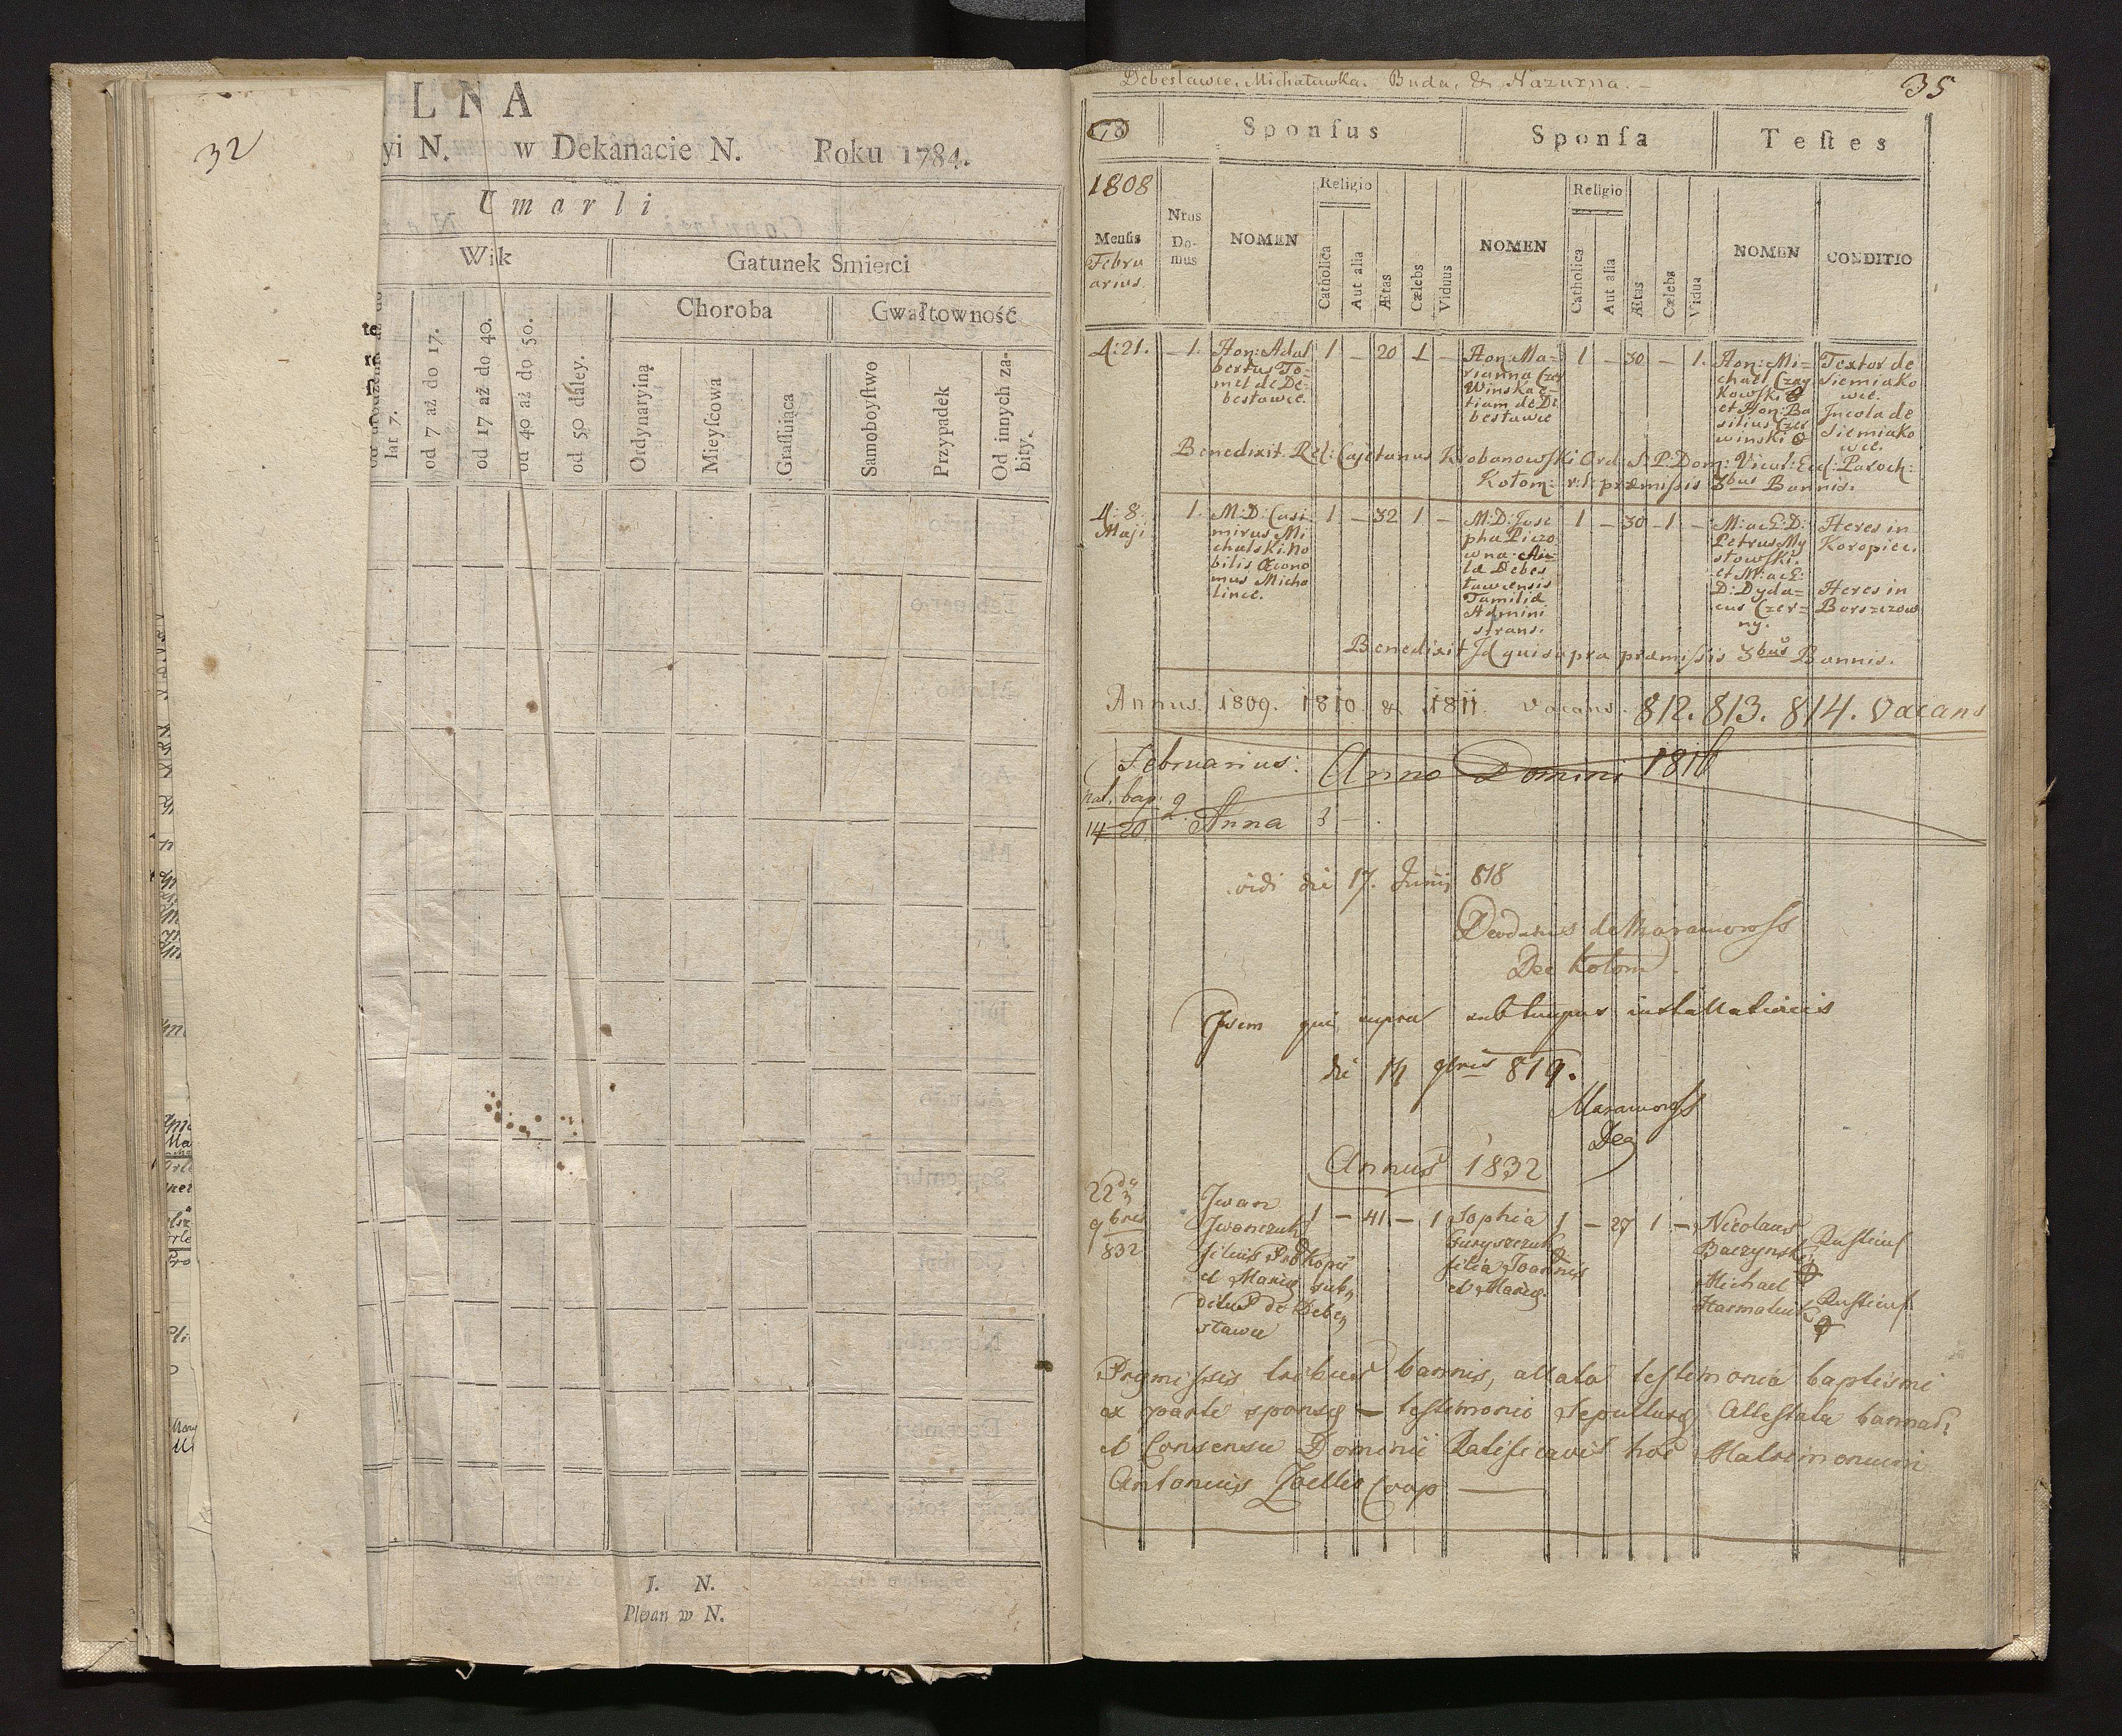 32
LNA
yi N. w Dekanacie N. Roku 1784.
Umarli
Wik
Gatunek Smierci
Choroba
Gwałtowność
lat 7.
od 7 aż do 17.
od 17 aż do 40.
od 40 aż do 50.
od 50 daley.
Ordynaryiną
Mieyſcowa
Graſſuiąca
Samoboyſtwo
Przypadek
Od innych za-
bity.
J. N.
Pleban w N.
Debesławce, Michałuwka. Buda, & Nazurna.
35
178
Sponſus
Sponſa
Teſtes
1808
Menſis
Febru
arius.
Nrus
Do-
mus
NOMEN
Religio
Catholica
Aut alia
Ætas
Cælebs
Viduus
NOMEN
Religio
Catholica
Aut alia
Ætas
Cælebs
Vidua
NOMEN
CONDITIO
d: 21. 1. Hon: Adal
bertus To-
mel de De-
besławce.
1 – 20 1 –
Hon: Ma-
rianna Czer
Winska e-
tiam de De
besławce
1 – 30 – 1.
Hon: Mi-
chael Czay
Kowski
et Hon: Ba
silius Czer
winski
Textor de
Siemiako
wce.
Incola de
Siemiako
wce.
Benedixit. Rel: Cajetanus Krobanowſki Ord: S: P: Dom: Vicar: Ecl: Paroch:
Kołom: r: l: præmiſsis 3bus Bannis.
d: 8.
Maji
1. M: D: Casi
mirus Mi
chalski No
bilis Œcono
mus Micha
lince.
1 – 32 1 –
M: D: Jose
pha Piczo
wna
Debes
ławiensis
Familiæ
Admini
strans.
1 – 30 – 1 –
M: ac G: D:
Petrus My
słowſki.
et M: ac G:
D: Dyda-
cus Czer-
ny.
Heres in
Koropiec.
Heres in
Borszczow
Benedixit Id qui supra præmiſsis 3bus Bannis.
Annus 1809. 1810 & 1811 vacans. 812. 813. 814. Vacans
Februarius. Anno Domini 1816
nat. bap.
14 20 2. Anna 3 –
vidi die 17. Junij 818
Deodatus de Maramoroſs
Dec Kołom
Idem qui supra sub tempus installationis
die 14 9bris 819.
Maramoroſs
Dec
Annus 1832
22da
9bris
832
Iwan
Iwanczuk
filius Prokopii
et Mariæ sub,
ditus de Debe,
sławce
1 – 41 – 1
Sophia
filia Joannis
et Mariæ.
1 – 27 1 –
Nicolaus
Baczynski
Michael
Harmatiuk
Ruſticus
Ruſticus
Præmiſsis tribus bannis, allata teſtimonia baptismi
ex parte sponsæ – teſtimonio Sepulturæ Atteſtata
et Consensu Dominii Ratificavit hoc Matrimonium
Antonius Zoeller Coop